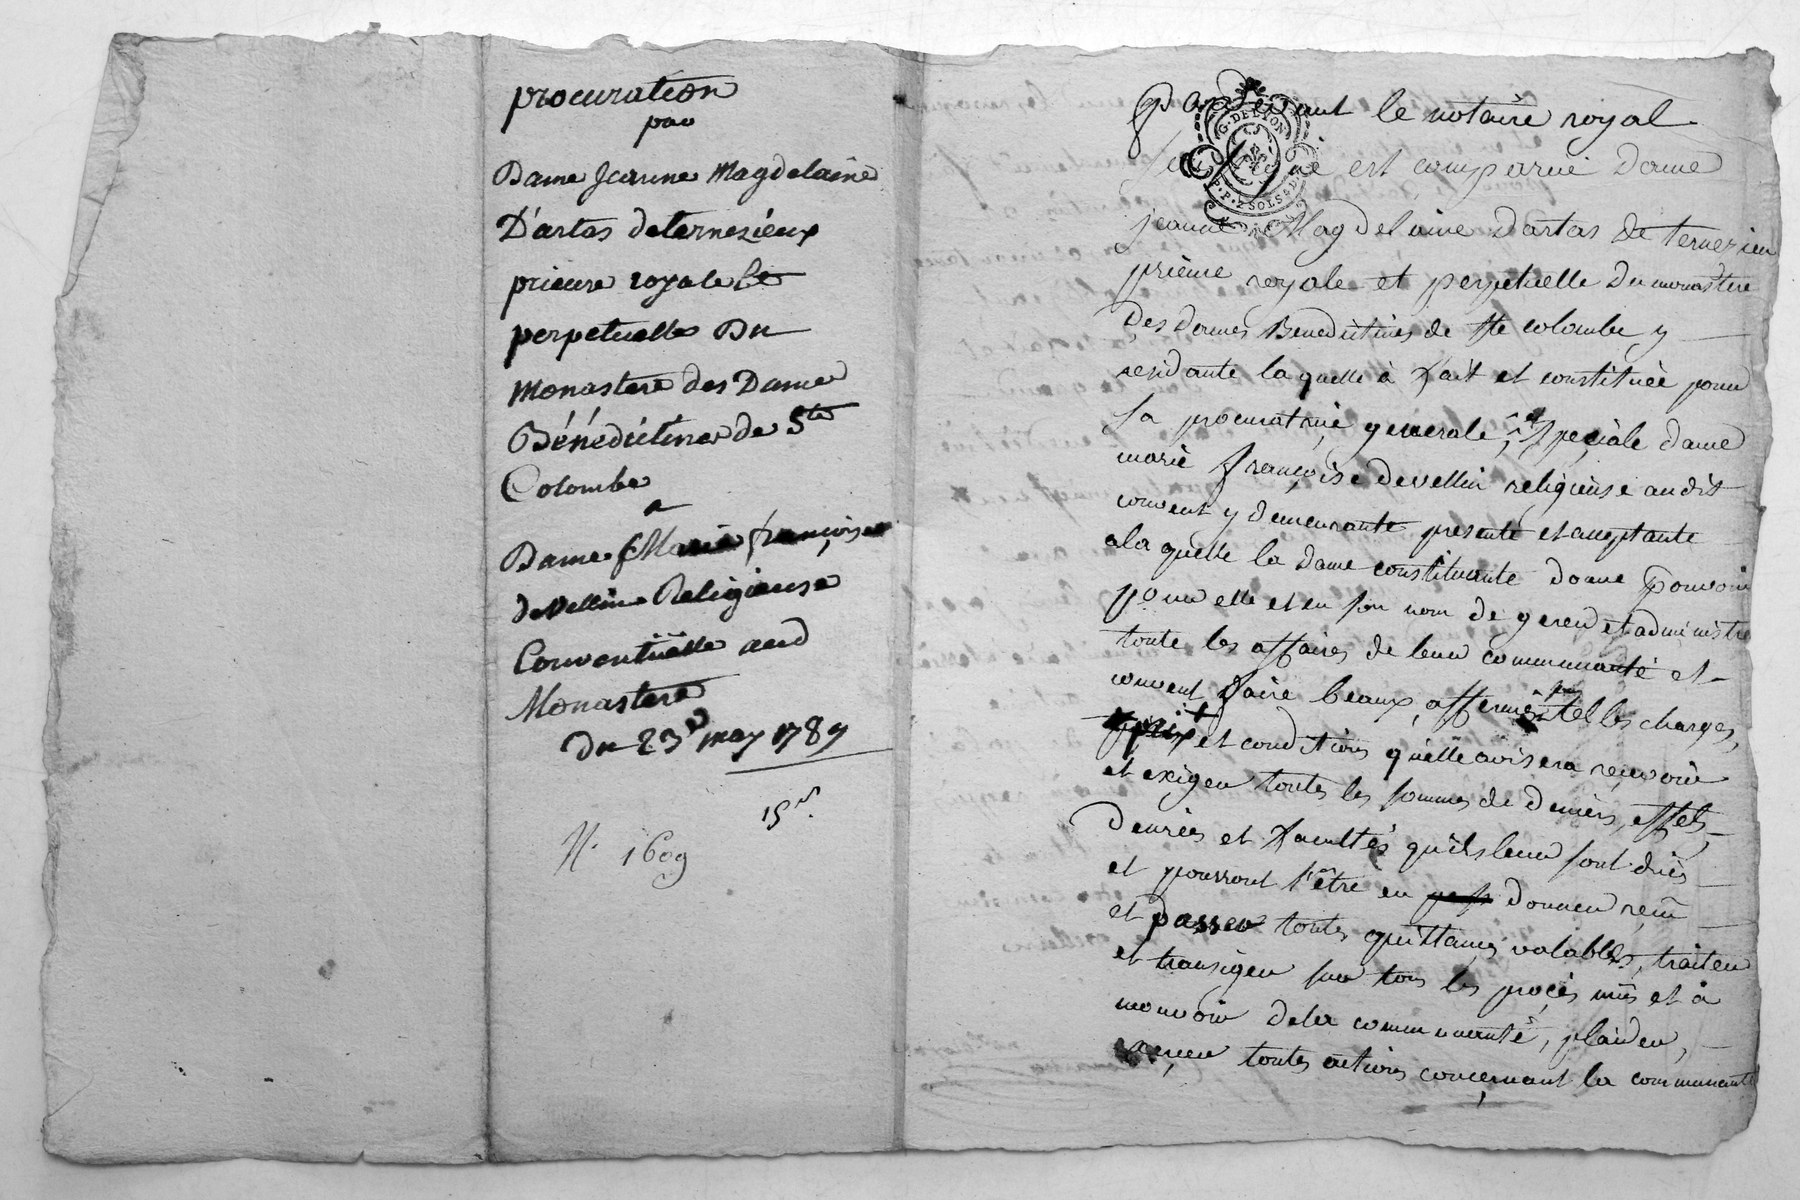 procuration
par
Dame Jeanne Magdelaine
D'artas deternezieux
prieure royale Et
perpetuelle Du
Monastere des Dames
Bénédictines de Ste
Colombe
a
Dame Marie françoise
deVellein Religieuse
Conventuelle aud
Monastere
Du 23 may 1787
15 s.
N. 1609
Par Devant le notaire royal
est comparue dame
jeanne Magdelaine Dartas de ternezieu
prieure royale et perpetuelle du monastere
Des dames Benedictines de ste colombe y
residante laquelle à fait et constituée pour
sa procuratrice generale et speciale dame
marie françoise devellein religieuse audit
couvent y demeurante presente et acceptante
ala quelle la dame constituante donne pouvoir
pour elle et en son nom de gerer et administre
toute les affaires de leur communauté et
couvent faire beaux affermés sous tel les charges,
prix et conditions qu'elle avisera reçevoir
et exiger toutes les sommes de deniers, effets,
Denrées et facultés qu'ils leur sont dües
et pourront l'être en donner
et passer toutes quittances valables, traiter
et transiger sur tous les proçès mûs et à
mouvoir dela communauté, plaider,
exerçer toutes actions conçernant la communauté
G. DE LYON
P. P. 2 SOLS 8 D